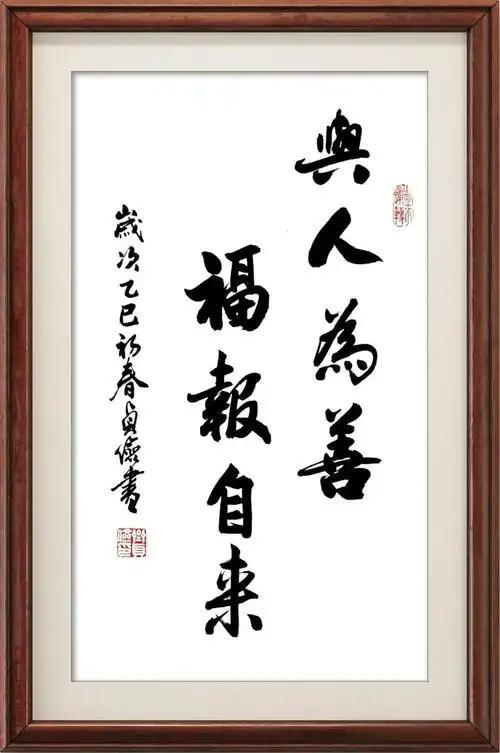 與人為善
福報自来
歲次乙巳初春貞儉書